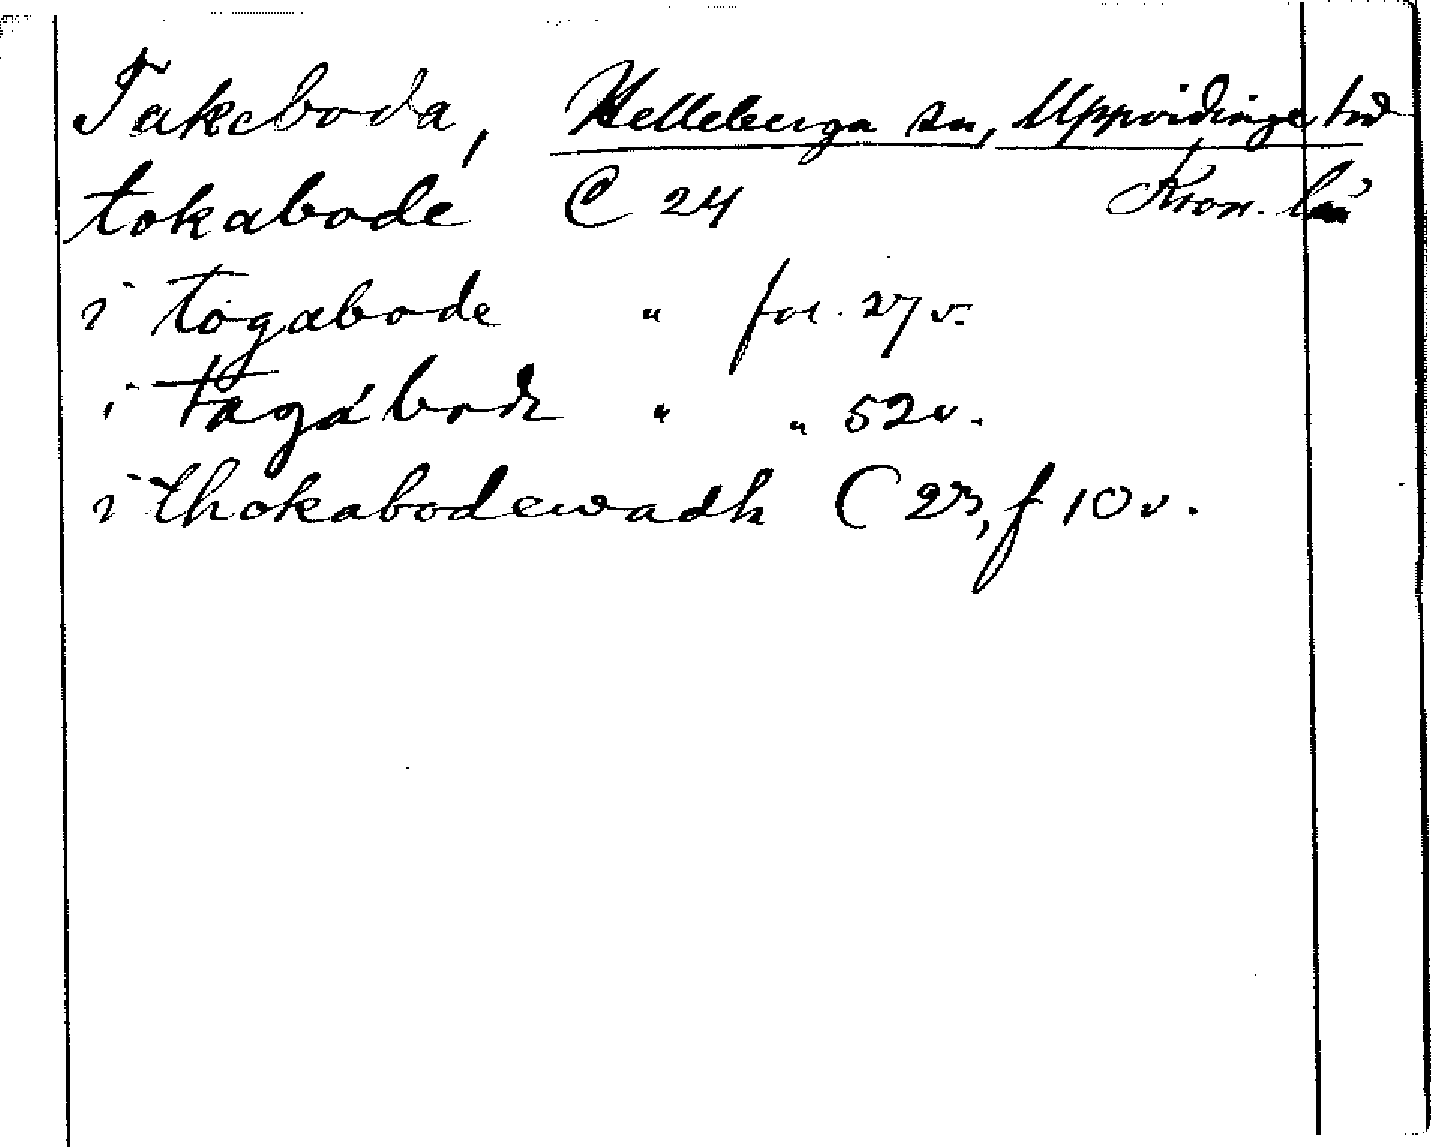 Takeboda, Helleberga sn, Uppvidinge hd
tokabode C 24 Kron. län
i togabode " fol. 27 v.
i tagabode " " 52 v.
i thokabodewadh C 23, f 10 v.